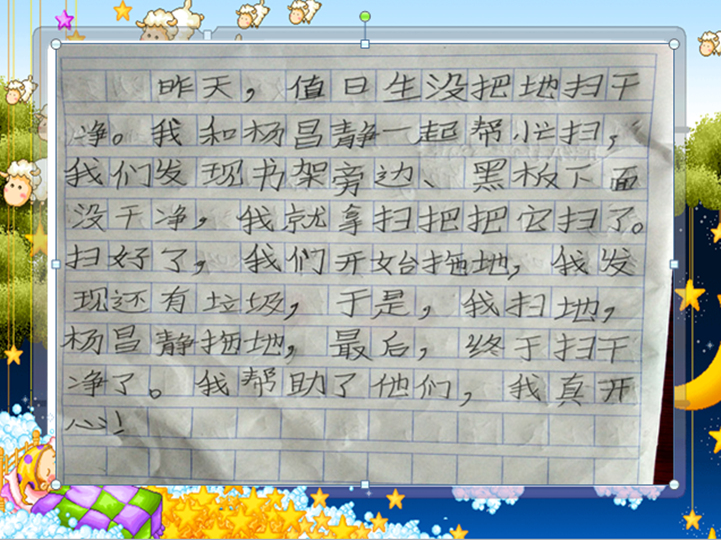 昨天，值日生没把地扫干
净。我和杨昌静一起帮忙扫，
我们发现书架旁边、黑板下面
没干净，我就拿扫把把它扫了。
扫好了，我们开始拖地，我发
现还有垃圾，于是，我扫地，
杨昌静拖地，最后，终于扫干
净了。我帮助了他们，我真开
心！